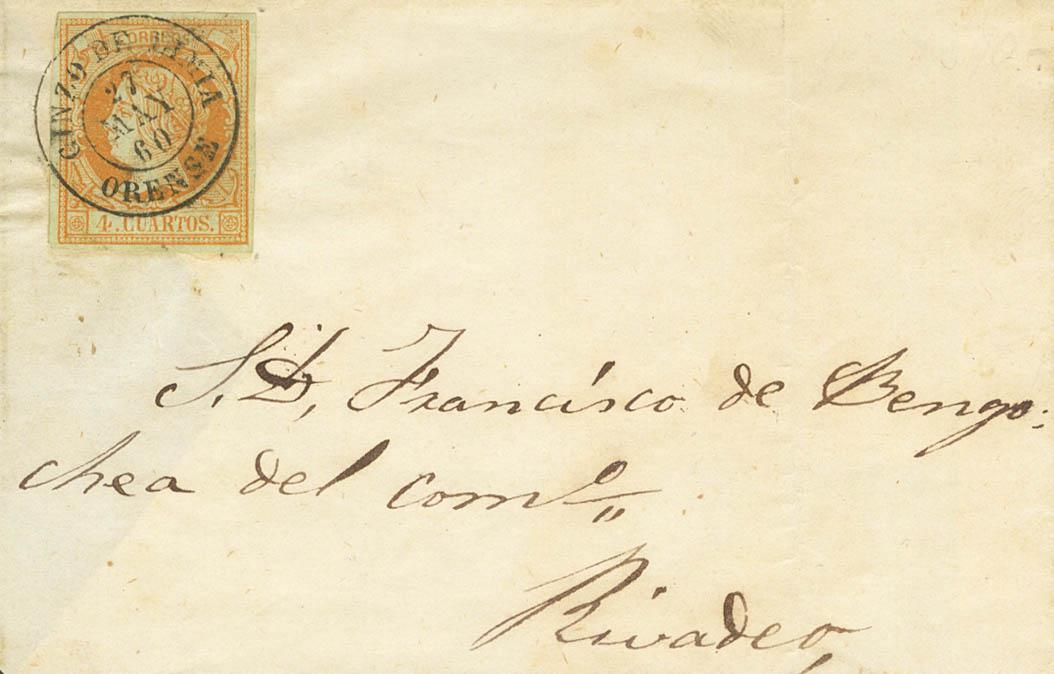 CORREOS
GINZO DE LIMIA
27
MAY
60
ORENSE
4.CUARTOS.
S. D, Francisco de Bengo-
chea del com.º
Rivadeo,